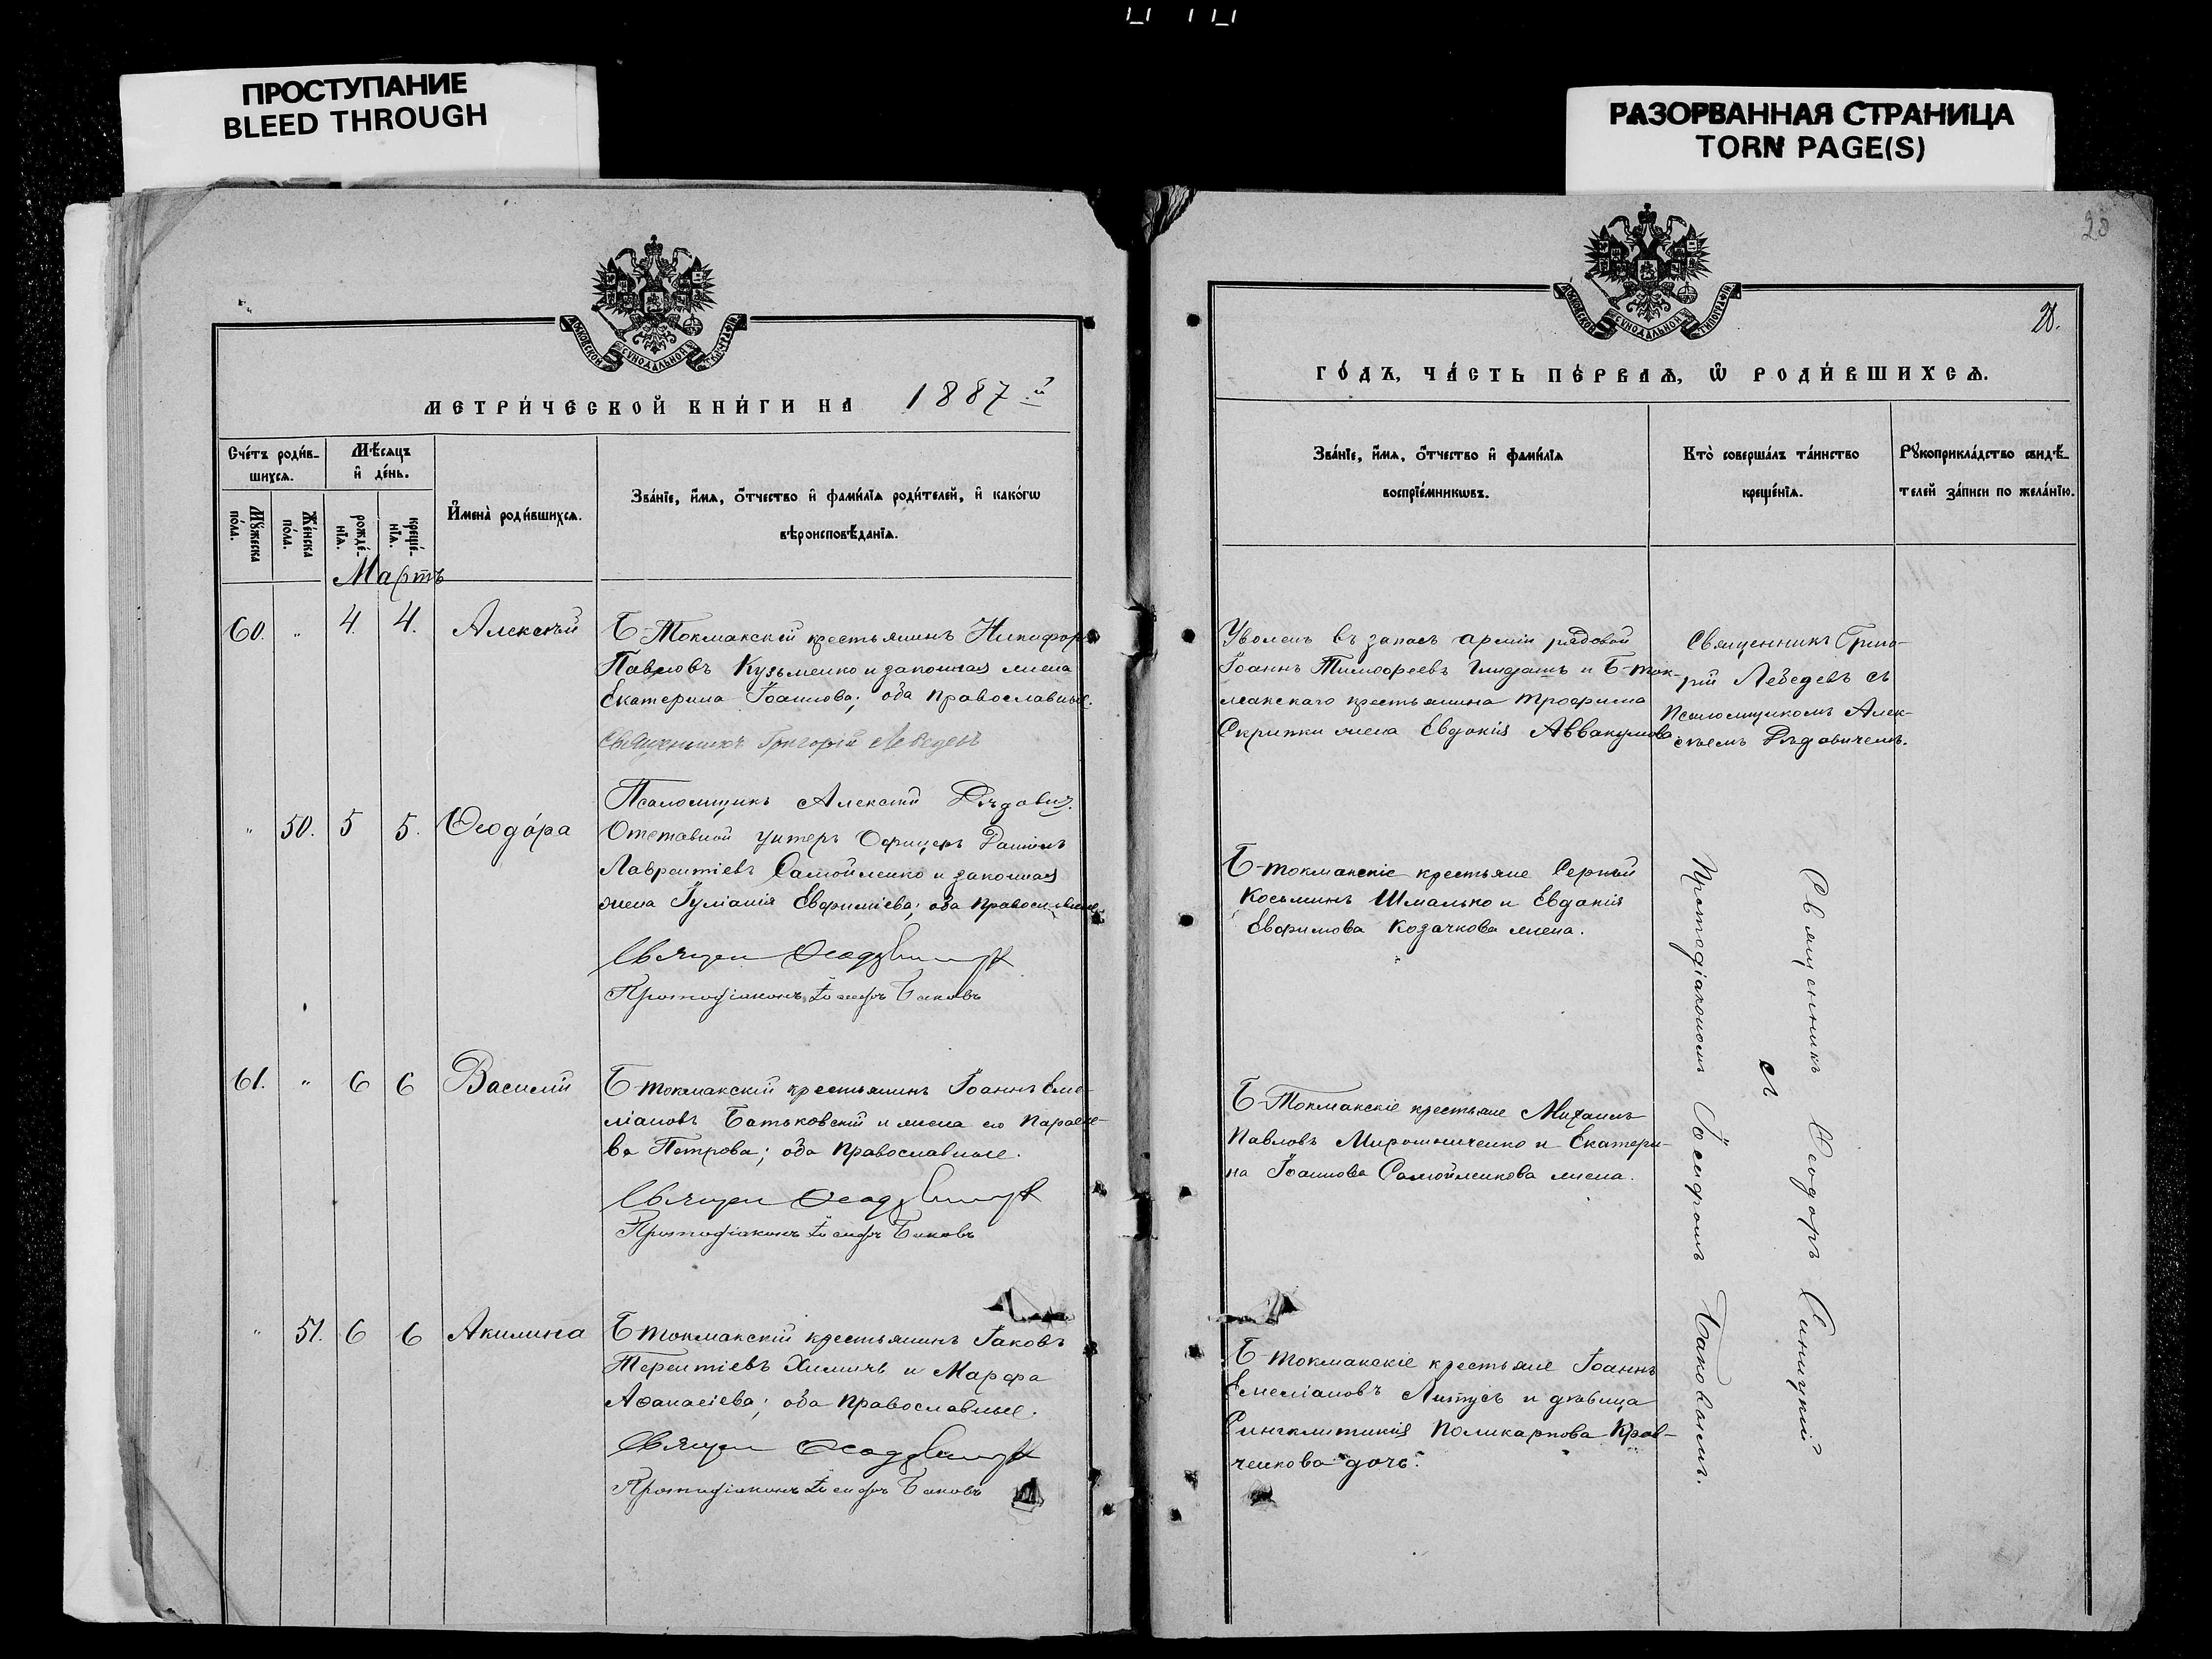 ПРОСТУПАНИЕ
BLEED THROUGH
РАЗОРВАННАЯ СТРАНИЦА
TORN PAGE(S)
МОСКОВСКОЙ СѴНОДАЛЬНОЙ ТИПОГРАФІИ
МЕТРИ́ЧЕСКОЙ КНИ́ГИ НА 1887й
Сче́тъ роди́в-
шихсѧ.
Мѣ́сѧцъ
и҆ де́нь.
Мꙋ́жеска
по́ла.
Же́нска
по́ла.
рожде́-
нїѧ.
креще́-
нїѧ.
И҆мена̀ роди́вшихсѧ.
Зва́нїе, и҆́мѧ, ѻ҆́тчество и҆ фами́лїѧ роди́телей, и҆ како́гѡ
вѣроисповѣ́данїѧ.
Мартъ
60. " 4. 4. Алексѣй
Б-Токмакскій крестьянинъ Никифоръ
Павловъ Кузьменко и законная жена
Екатерина Іоаннова; оба православные.
Священникъ Григорій Лебедевъ
Псаломщикъ Алексѣй Дѣдович.
" 50. 5 5. Ѳеодо́ра
Отставной унтеръ Офицеръ Даніилъ
Лаврентіевъ Самойленко и законная
жена Іуліанія Евфиміева; оба православные
Священ
Протодіаконъ Іосифъ Баковъ
61. " 6 6 Василій
Б-токмакскій крестьянинъ Іоаннъ Еме-
ліановъ Батьковскій и жена его Параске-
ва Петрова; оба православные.
Священ
Протодіаконъ Іосифъ Баковъ
" 51. 6 6 Акилина
Б-токмакскій крестьянинъ Іаковъ
Терентіевъ Химичъ и Марфа
Аѳанасіева; оба православные.
Священ
Протодіаконъ Іосифъ Баковъ
28
МОСКОВСКОЙ СѴНОДАЛЬНОЙ ТИПОГРАФІИ
28.
ГО́ДЪ, ЧА́СТЬ ПЕ́РВАѦ, Ѽ РОДИ́ВШИХСѦ.
Зва́нїе, и҆́мѧ, ѻ҆́тчество и҆ фами́лїѧ
воспрїе́мникѡвъ.
Кто̀ соверша́лъ та́инство
креще́нїѧ.
Рꙋкоприкла́дство свидѣ́-
телей за́писи по жела́нїю.
Уволен въ запасъ арміи рядовой
Іоаннъ Тимоѳеевъ и Б-ток-
макскаго крестьянина Трофима
Скрипки жена Евдокія Аввакумова
Священникъ Григо-
рій Лебедевъ съ
Псаломщикомъ Алек-
сѣемъ Дѣдовичемъ.
Б-токмакскіе крестьяне Сергѣй
Косьминъ Шмалько и Евдокія
Евфимова Козачкова жена.
Б-Токмакскіе крестьяне Михаилъ
Павловъ Мирошниченко и Екатери-
на Іоаннова Самойленкова жена.
Б-токмакскіе крестьяне Іоаннъ
Емеліановъ Литусъ и дѣвица
Синклитикія Поликарпова Крав-
ченкова дочь.
Священникъ Ѳеодоръ Синицкій
съ
Протодіакономъ Іосифомъ Баковымъ.